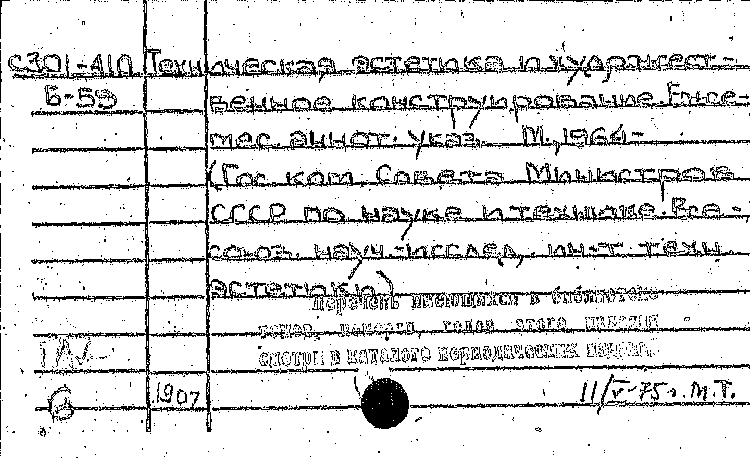 С301-41П Техническая эстетика и художест-
Б-59 венное конструирование. Ежеме-
мес. аннот. указ. М., 1964-
(Гос. ком. Совета Министров
СССР по науке и технике. Все-
союз. науч.-исслед. ин-т техн.
эстетики)
Перечень имеющихся в библиотеке
номеров, годов этого издания
смотри в каталоге периодических издан.
1907 11/V-75 г. М.Т.